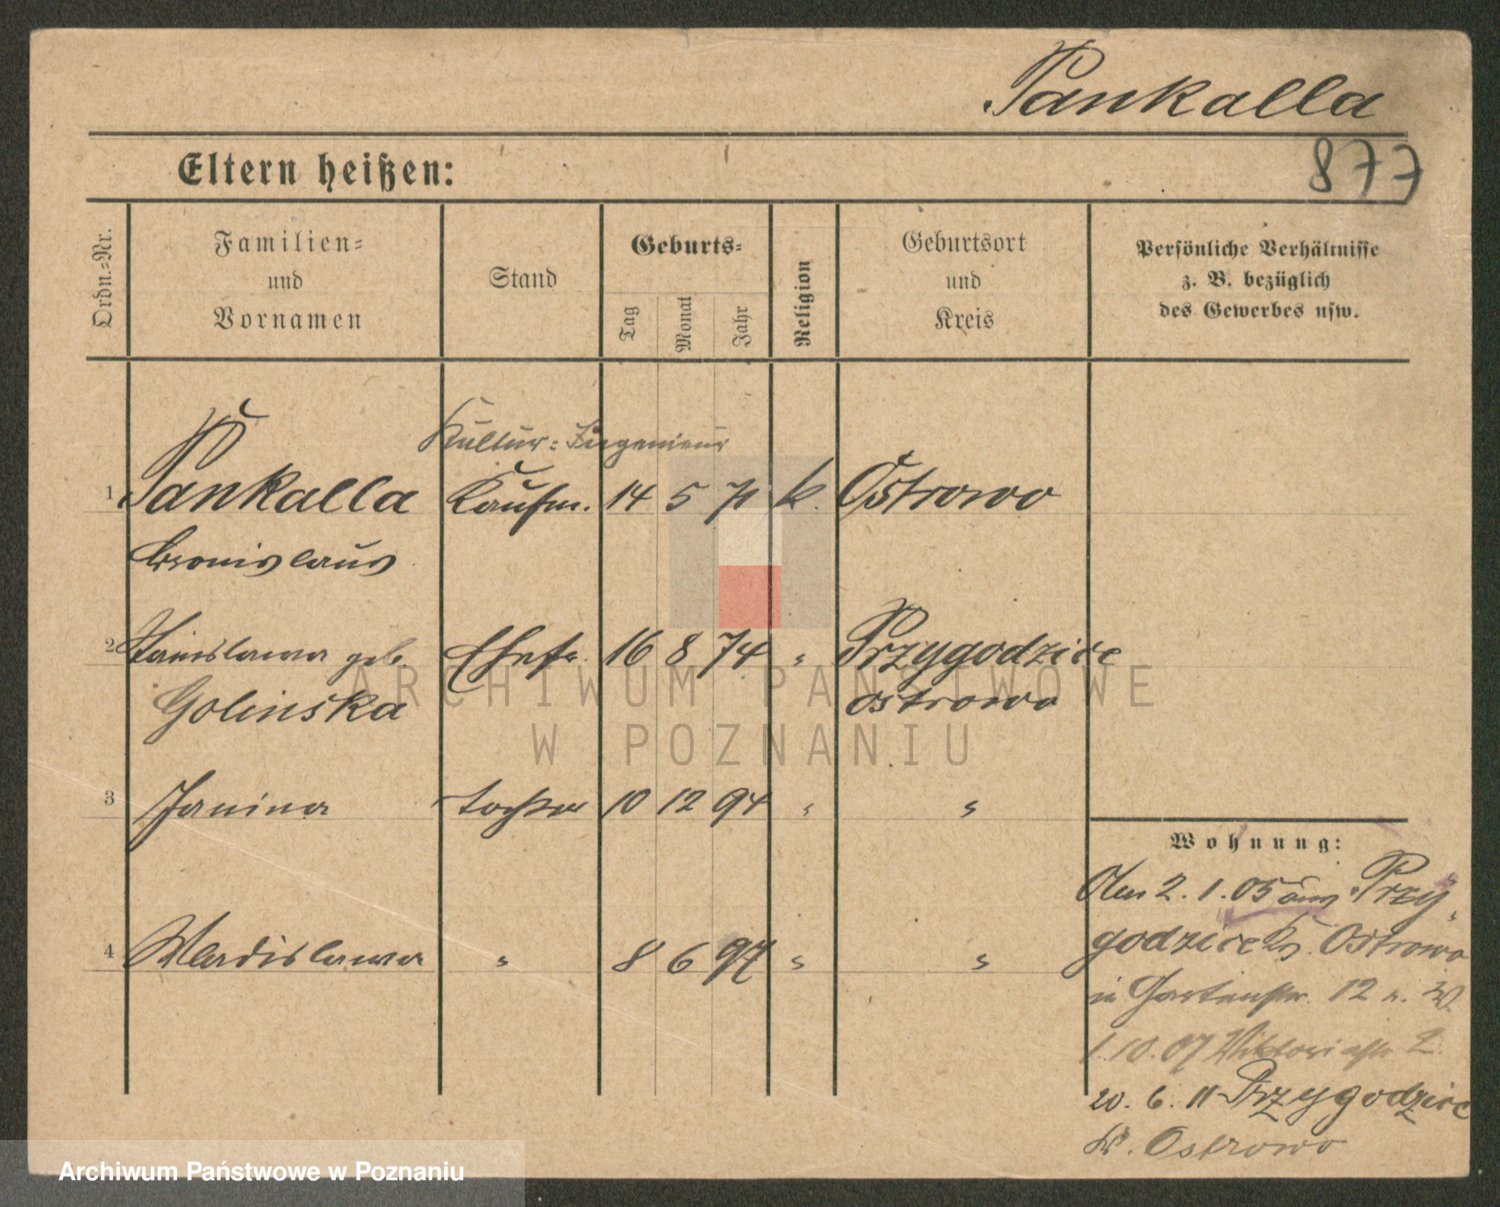 Pankalla
877
Eltern heißen:
Ordn.-Nr.
Familien-
und
Vornamen
Stand
Geburts-
Tag
Monat
Jahr
Religion
Geburtsort
und
Kreis
Persönliche Verhältnisse
z. B. bezüglich
des Gewerbes usw.
Kultur-Ingenieur
1 Pankalla Kaufm. 14 5 71 k. Ostrowo
Bronislaus
2 Stanislawa geb. Ehefr. 16 8 74 " Przygodzice
Golinska Ostrowo
3 Janina Tochter 10 12 94 " "
Wohnung:
Am 2.1.05 aus Przy-
4 Wladislawa " 8 6 97 " "
godzice Kr. Ostrowo
in Gartenstr. 12
1.10.07 Viktoriastr. 2
20.6.11 Przygodzice
Kr. Ostrowo
ARCHIWUM PAŃSTWOWE
W POZNANIU
Archiwum Państwowe w Poznaniu